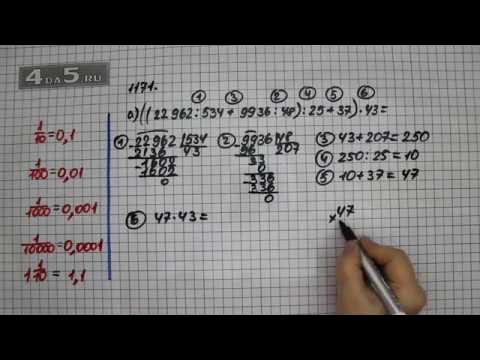 4DA5.RU
1171.
① ③ ② ④ ⑤ ⑥
а)((22962:534+9936:48):25+37)·43=
① 22962 | 534
2136 | 43
-1602
1602
0
② 9936 | 48
96 | 207
33
0
-336
336
0
③ 43+207=250
④ 250:25=10
⑤ 10+37=47
⑥ 47·43=
×47
1/10=0,1
1/100=0,01
1/1000=0,001
1/10000=0,0001
1 1/10=1,1